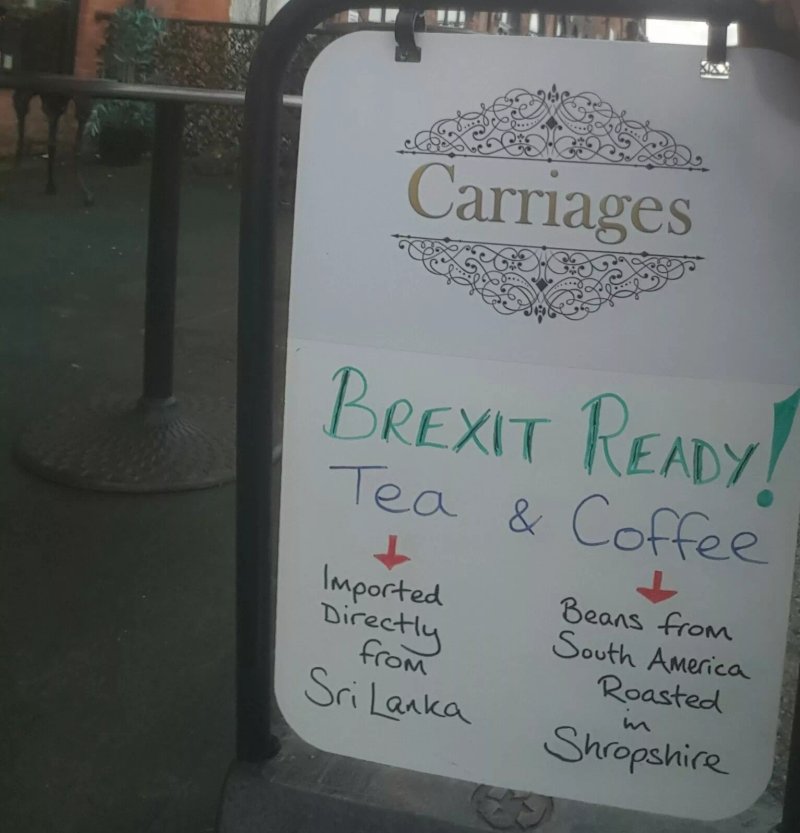 Carriages
BREXIT READY!
Tea & Coffee
Imported
Directly
from
Sri Lanka
Beans from
South America
Roasted
in
Shropshire